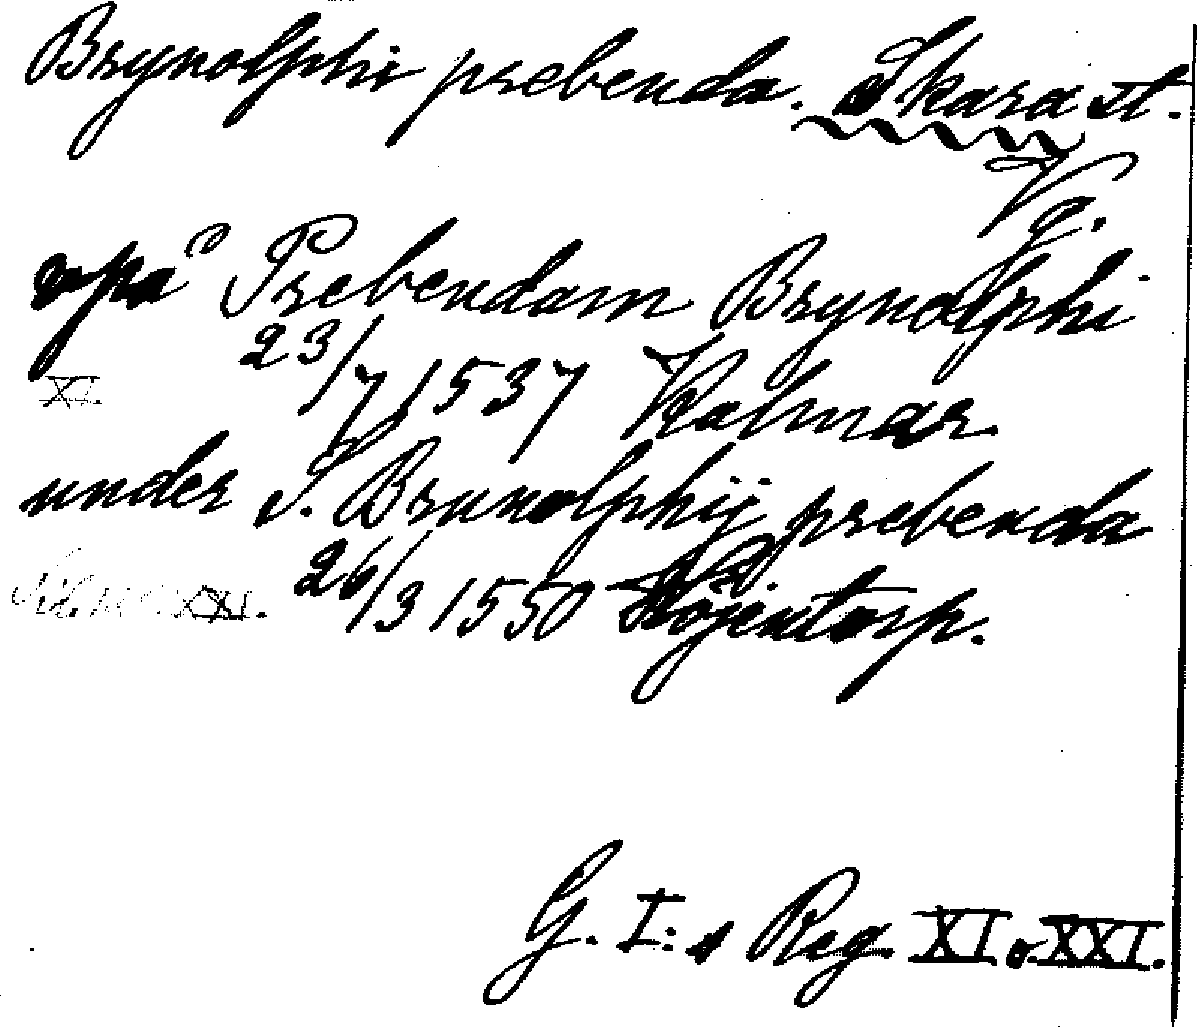 Brynolphi prebenda. Skara st.
Vg.
opå Prebendam Brynolphi
XI. 23/7 1537 Kalmar.
under S. Brunolphij prebenda
XXI. 26/3 1550 Höjentorp.
G. I:s Reg. XI o. XXI.